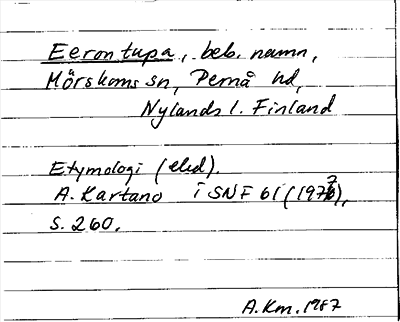 Eerontupa, beb. namn,
Mörskoms sn, Pernå hd,
Nylands l. Finland
Etymologi (eld).
A. Kartano i SNF 61 (1977),
s. 260.
A.Km. 1987